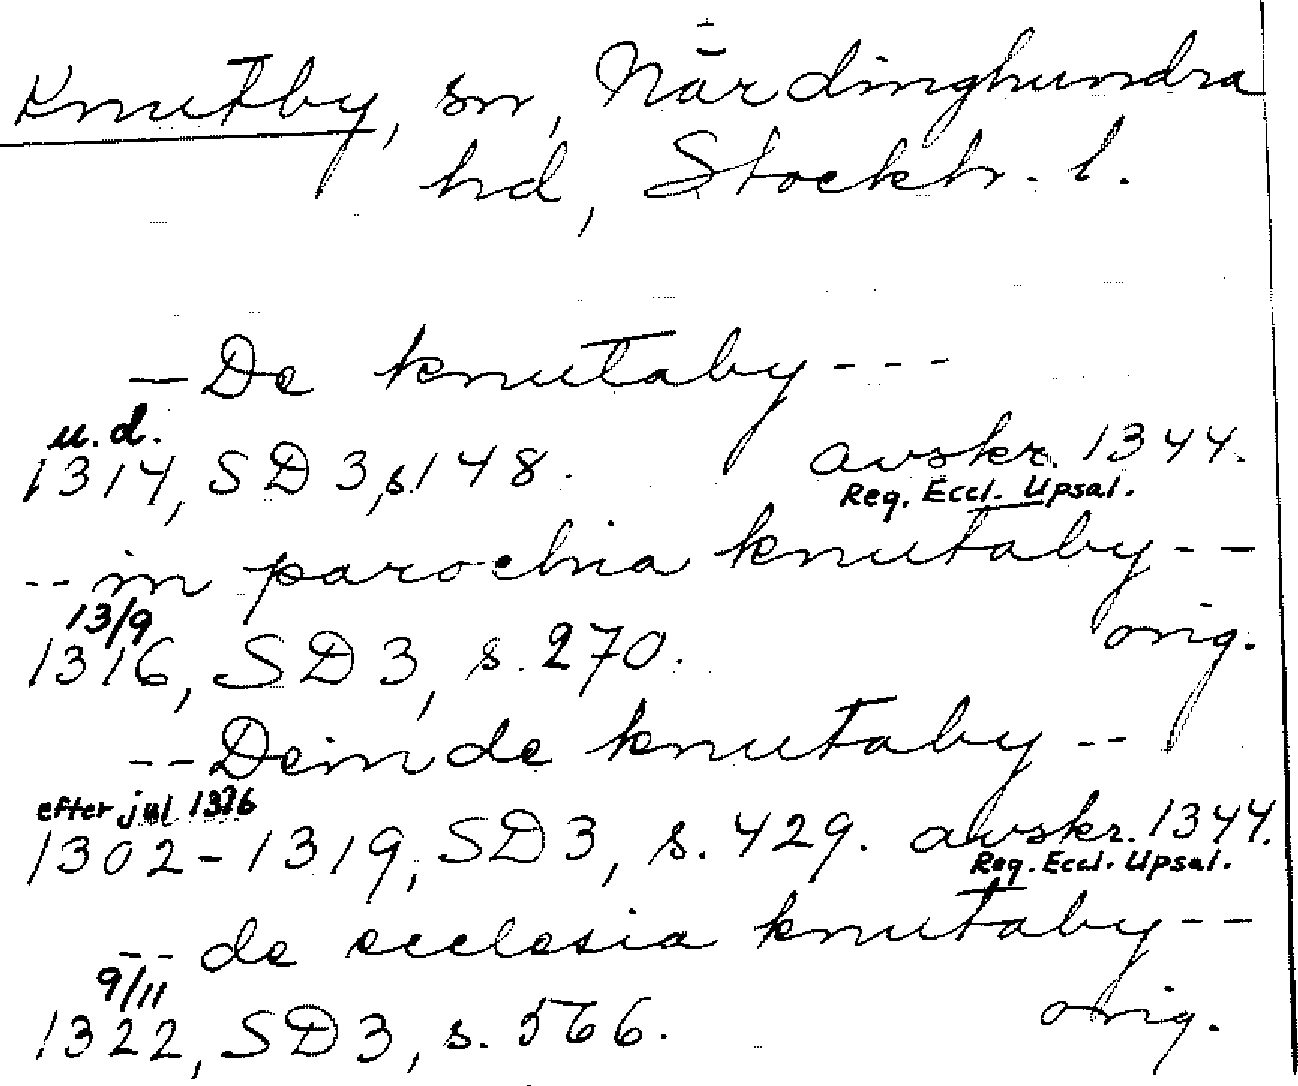 Knutby, sn, Närdinghundra
hd, Stockh. l.
- De knutaby ---
u. d.
1314, SD 3, s. 148. avskr. 1344.
Reg. Eccl. Upsal.
-- in parochia knutaby --
13/9
1316, SD 3, s. 270. orig.
-- Deinde knutaby --
efter jul 1316
1302-1319, SD 3, s. 429. avskr. 1344.
Reg. Eccl. Upsal.
-- de ecclesia knutaby --
9/11
1322, SD 3, s. 566. orig.